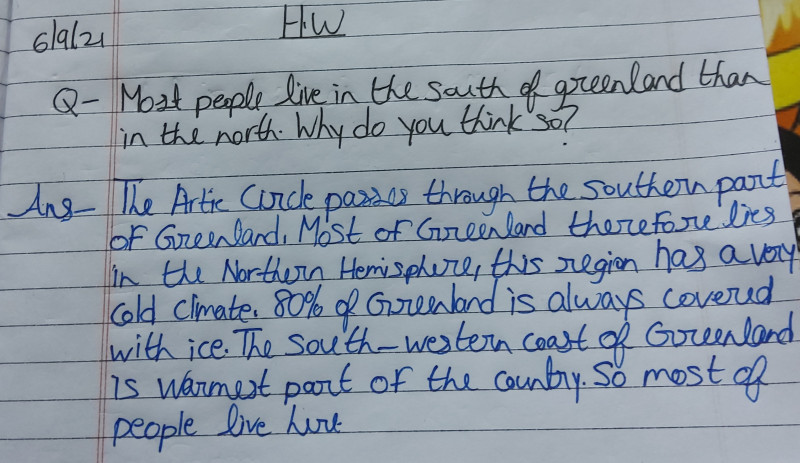 6/9/21 H.W
Q- Most people live in the south of greenland than
in the north. Why do you think so?
Ans- The Artic Circle passes through the southern part
of Greenland. Most of Greenland therefore lies
in the Northern Hemisphere, this region has a very
Cold Climate. 80% of Greenland is always covered
with ice. The South-western coast of Greenland
is warmest part of the country. So most of
people live here